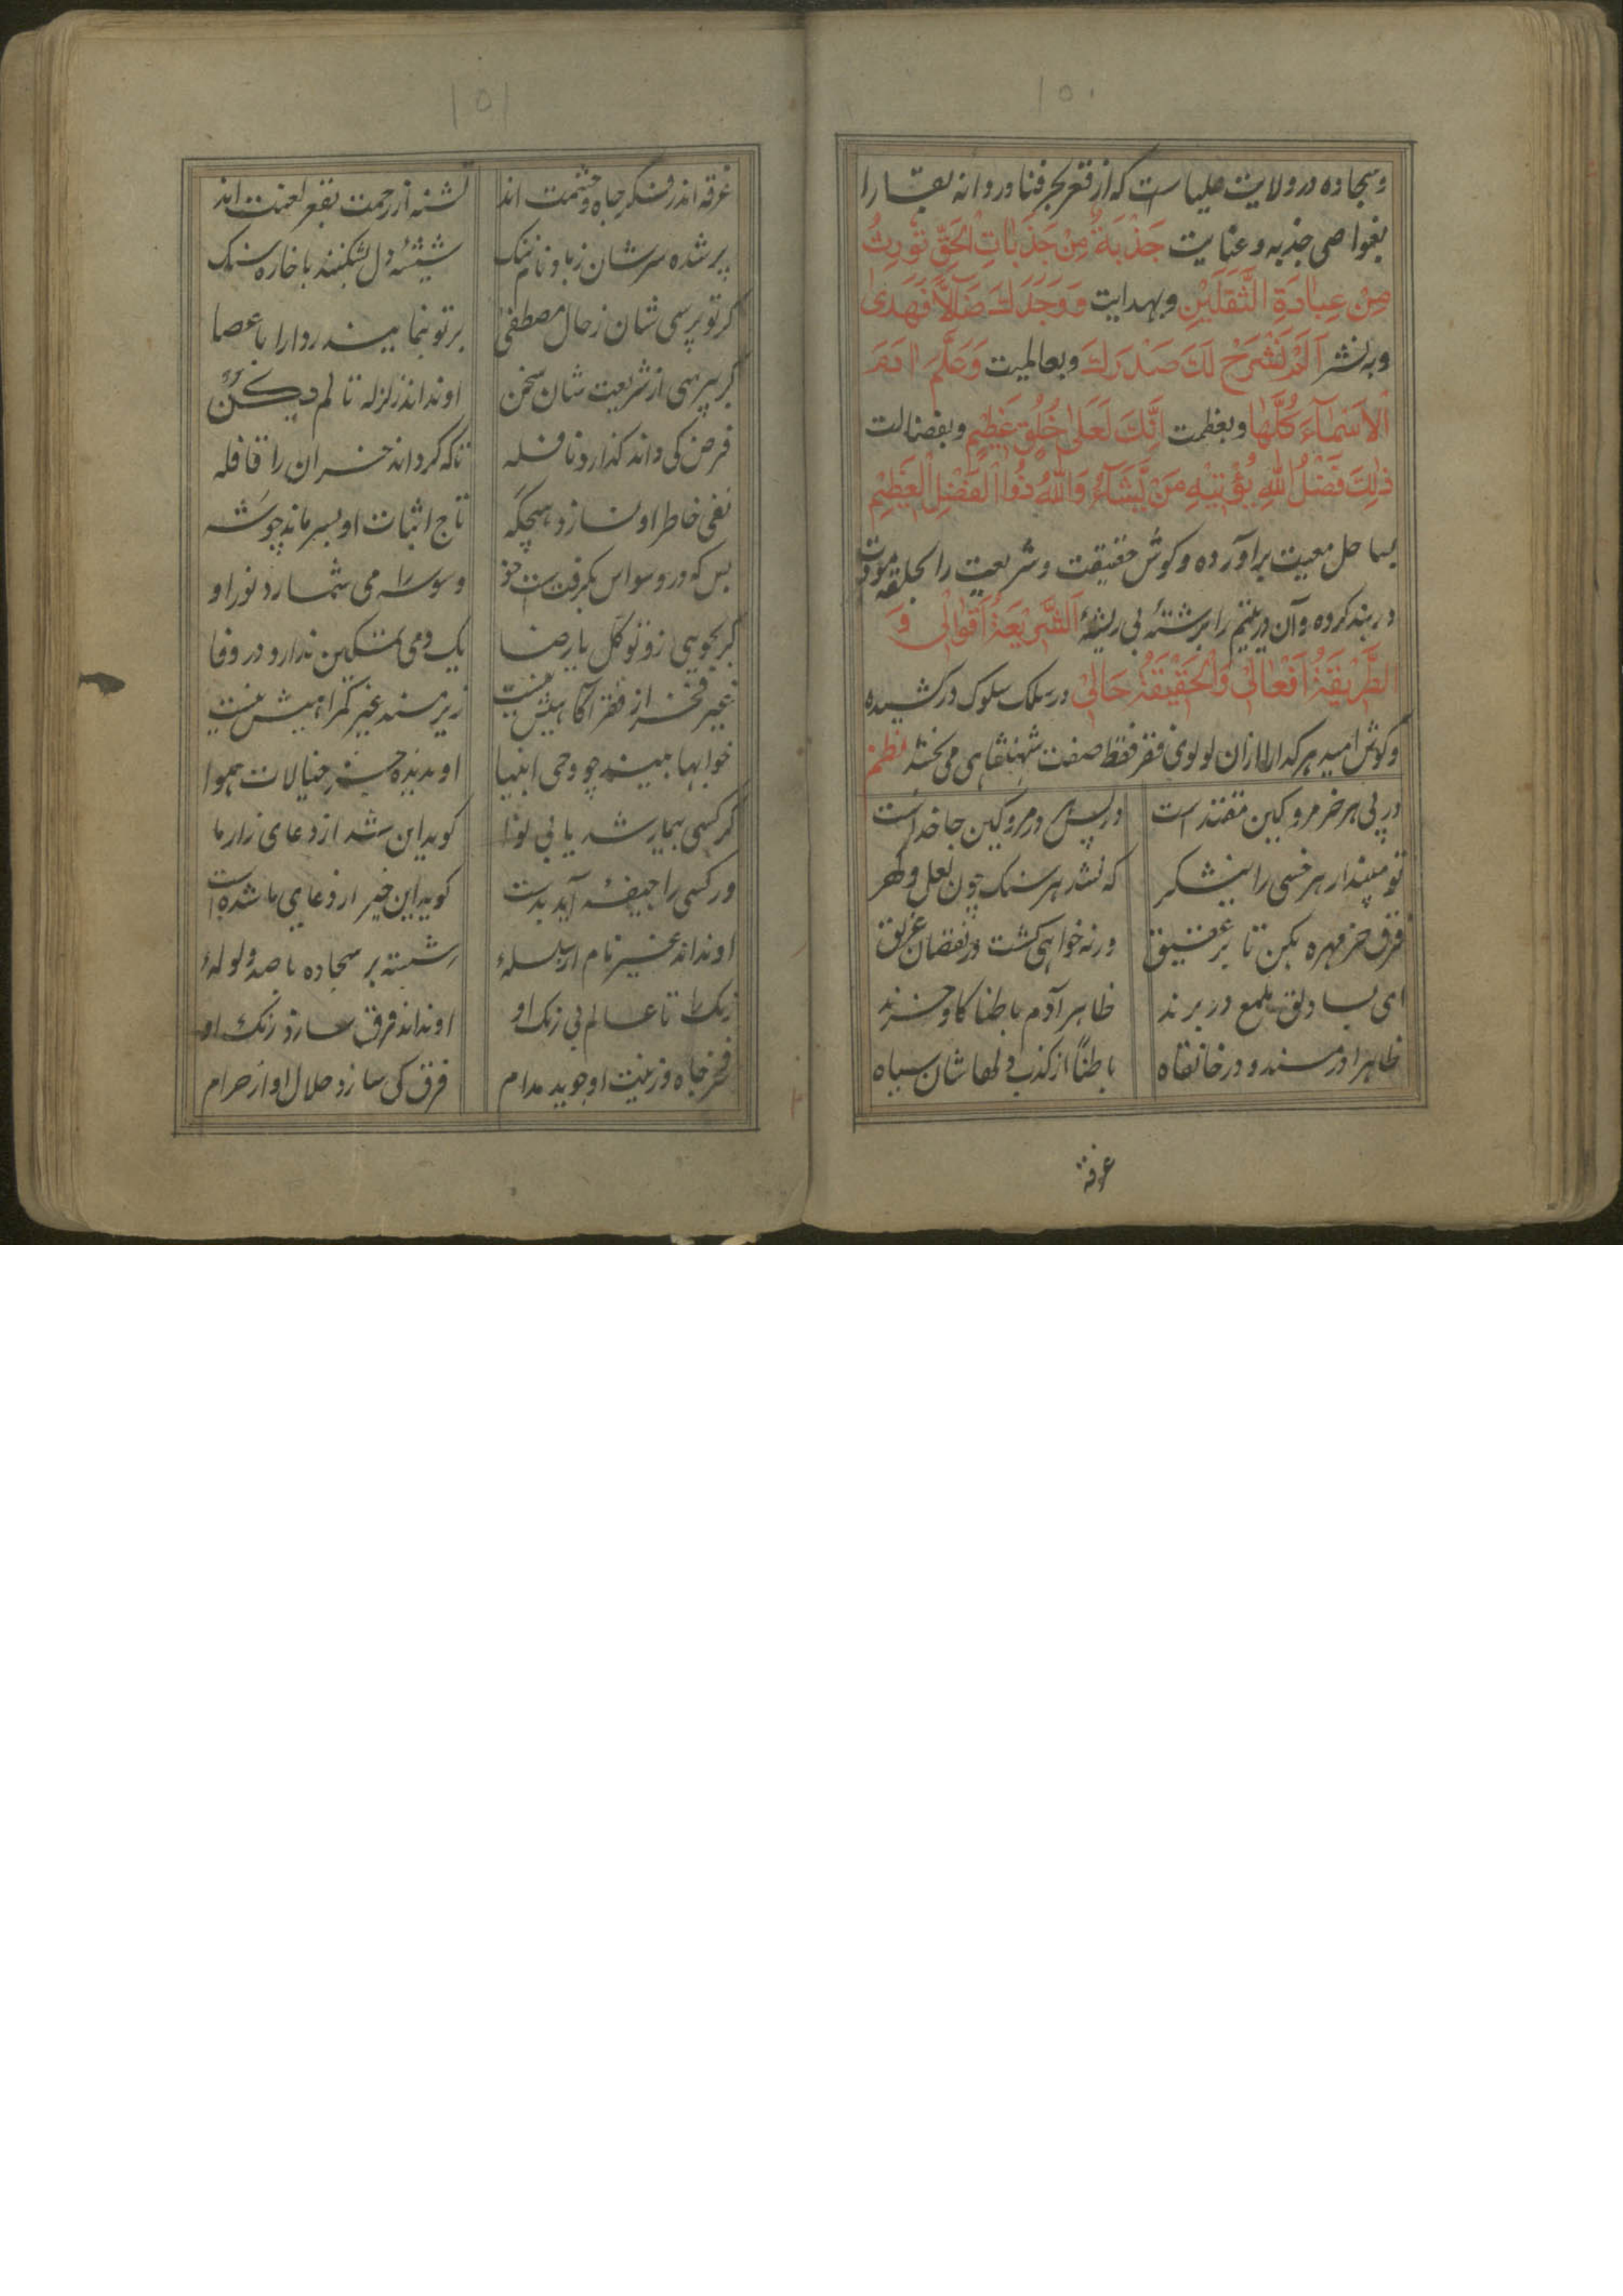 ١٥٠
وسجاده در ولایت علیاست که از قعر بحر فنا در دانه بقا را
بغواصی جذبه و عنایت جَذْبَةٌ مِنْ جَذَبَاتِ الْحَقِّ
مِنْ عِبَادَةِ الثَّقَلَيْنِ وبهدایت وَوَجَدَكَ ضَآلًّا فَهَدٰی
اَلَمْ نَشْرَحْ لَكَ صَدْرَكَ وبعالمیت وَعَلَّمَ اٰدَمَ
الْاَسْمَآءَ كُلَّهَا وبعظمت اِنَّكَ لَعَلٰی خُلُقٍ عَظِيْمٍ وبفضالت
ذٰلِكَ فَضْلُ اللّٰهِ يُؤْتِيْهِ مَنْ يَّشَآءُ وَاللّٰهُ ذُوا الْفَضْلِ الْعَظِيْمِ
بساحل معیت برآورده و کوش حقیقت و شریعت را بحلقه مودت
در بند کرده وآن در یتیم را برشتهٔ بی ریشهٔ اَلشَّرِيْعَةُ اَقْوَالِیْ وَ
الطَّرِيْقَةُ اَفْعَالِیْ وَالْحَقِيْقَةُ حَالِیْ در سلک سلوک درکشیده
وکوش امید هر کدا را ازان لولوی فقر فقط صفت شهنشاهی می بخشد نظم
در پی هر خر مرو کین مقتد است در پس هر در مرو کین جا خداست
تو مپندار هر خسی را نیشکر که نشد هر سنک چون لعل و کهر
فرق خر مهره بکن تا بر عقیق ورنه خواهی کشت در نقصان غریق
ای بسا دلق ملمع در برند ظاهر آدم باطنا کاو وخرند
ظاهرا در مسند و در خانقاه باطناً از کذب دلهاشان سیاه
غرقه
١٥١
غرقه اندر فکر جاه وحشمت اند تشنه از رحمت بقعر لعنت اند
پر شده سرشان زباد نام وننک شیشهٔ دل بشکنند با خاره سنک
کر تو پرسی شان زحال مصطفی بر تو بنمایند ردا را با عصا
کر بپرسی از شریعت شان سخن او نداند زلزله تا لم یکن
فرض کی داند کذارد نافله تا که کرداند خسران را قافله
نفی خاطر او نسازد هیچکه تاج اثبات او بسر ماند چو شه
بس که در وسواس بکرفتست خو وسوسه را می شمارد نور او
کر بجویی زو توکل یا رضا یک دمی تمکین ندارد در وفا
غیر فخر از فقر آکاهیش نیست زیر مسند غیر کمراهیش نیست
خوابها بیند چو وحی انبیا او ندیده جز خیالات هوا
کر کسی بیمار شد یا بی نوا کوید این شد از دعای زار ما
ور کسی را جیفهٔ آید بدست کوید این خیر از دعای ما شده است
او نداند غیر نام از سلسله شسته بر سجاده با صد ولوله
رنک را تا عالم بی رنک او او نداند فرق سازد رنک او
فخر جاه و زینت او جوید مدام فرق کی سازد حلال او از حرام